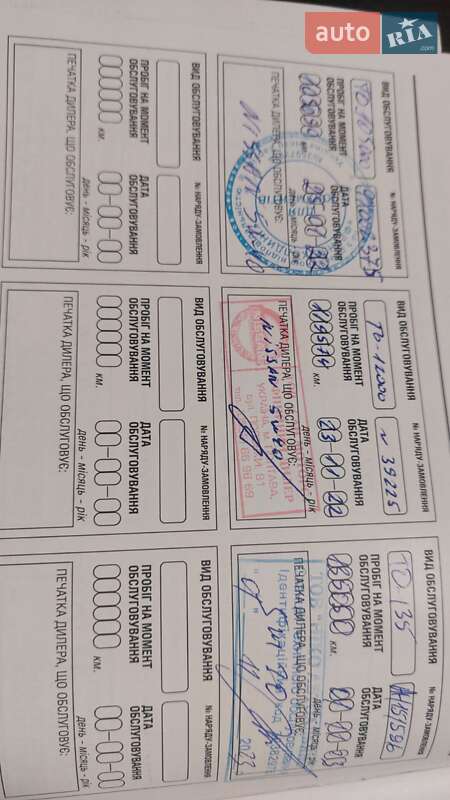 auto RIA .com
ВИД ОБСЛУГОВУВАННЯ
№ НАРЯДУ-ЗАМОВЛЕННЯ
ПРОБІГ НА МОМЕНТ
ОБСЛУГОВУВАННЯ
ДАТА
ОБСЛУГОВУВАННЯ
км.
день - місяць - рік
ПЕЧАТКА ДИЛЕРА, ЩО ОБСЛУГОВУЄ:
ВИД ОБСЛУГОВУВАННЯ
№ НАРЯДУ-ЗАМОВЛЕННЯ
ТО-12000
№ 39225
ПРОБІГ НА МОМЕНТ
ОБСЛУГОВУВАННЯ
ДАТА
ОБСЛУГОВУВАННЯ
день - місяць - рік
ПЕЧАТКА ДИЛЕРА, ЩО ОБСЛУГОВУЄ:
NISSAN
66 98 69
ВИД ОБСЛУГОВУВАННЯ
№ НАРЯДУ-ЗАМОВЛЕННЯ
ТО-135
ПРОБІГ НА МОМЕНТ
ОБСЛУГОВУВАННЯ
ДАТА
ОБСЛУГОВУВАННЯ
день - місяць - рік
ПЕЧАТКА ДИЛЕРА, ЩО ОБСЛУГОВУЄ:
ТОВ
ВИД ОБСЛУГОВУВАННЯ
№ НАРЯДУ-ЗАМОВЛЕННЯ
ПРОБІГ НА МОМЕНТ
ОБСЛУГОВУВАННЯ
ДАТА
ОБСЛУГОВУВАННЯ
000000 км.
00-00-00
день - місяць - рік
ПЕЧАТКА ДИЛЕРА, ЩО ОБСЛУГОВУЄ:
ВИД ОБСЛУГОВУВАННЯ
№ НАРЯДУ-ЗАМОВЛЕННЯ
ПРОБІГ НА МОМЕНТ
ОБСЛУГОВУВАННЯ
ДАТА
ОБСЛУГОВУВАННЯ
000000 км.
00-00-00
день - місяць - рік
ПЕЧАТКА ДИЛЕРА, ЩО ОБСЛУГОВУЄ:
ВИД ОБСЛУГОВУВАННЯ
№ НАРЯДУ-ЗАМОВЛЕННЯ
ПРОБІГ НА МОМЕНТ
ОБСЛУГОВУВАННЯ
ДАТА
ОБСЛУГОВУВАННЯ
000000 км.
00-00-00
день - місяць - рік
ПЕЧАТКА ДИЛЕРА, ЩО ОБСЛУГОВУЄ: